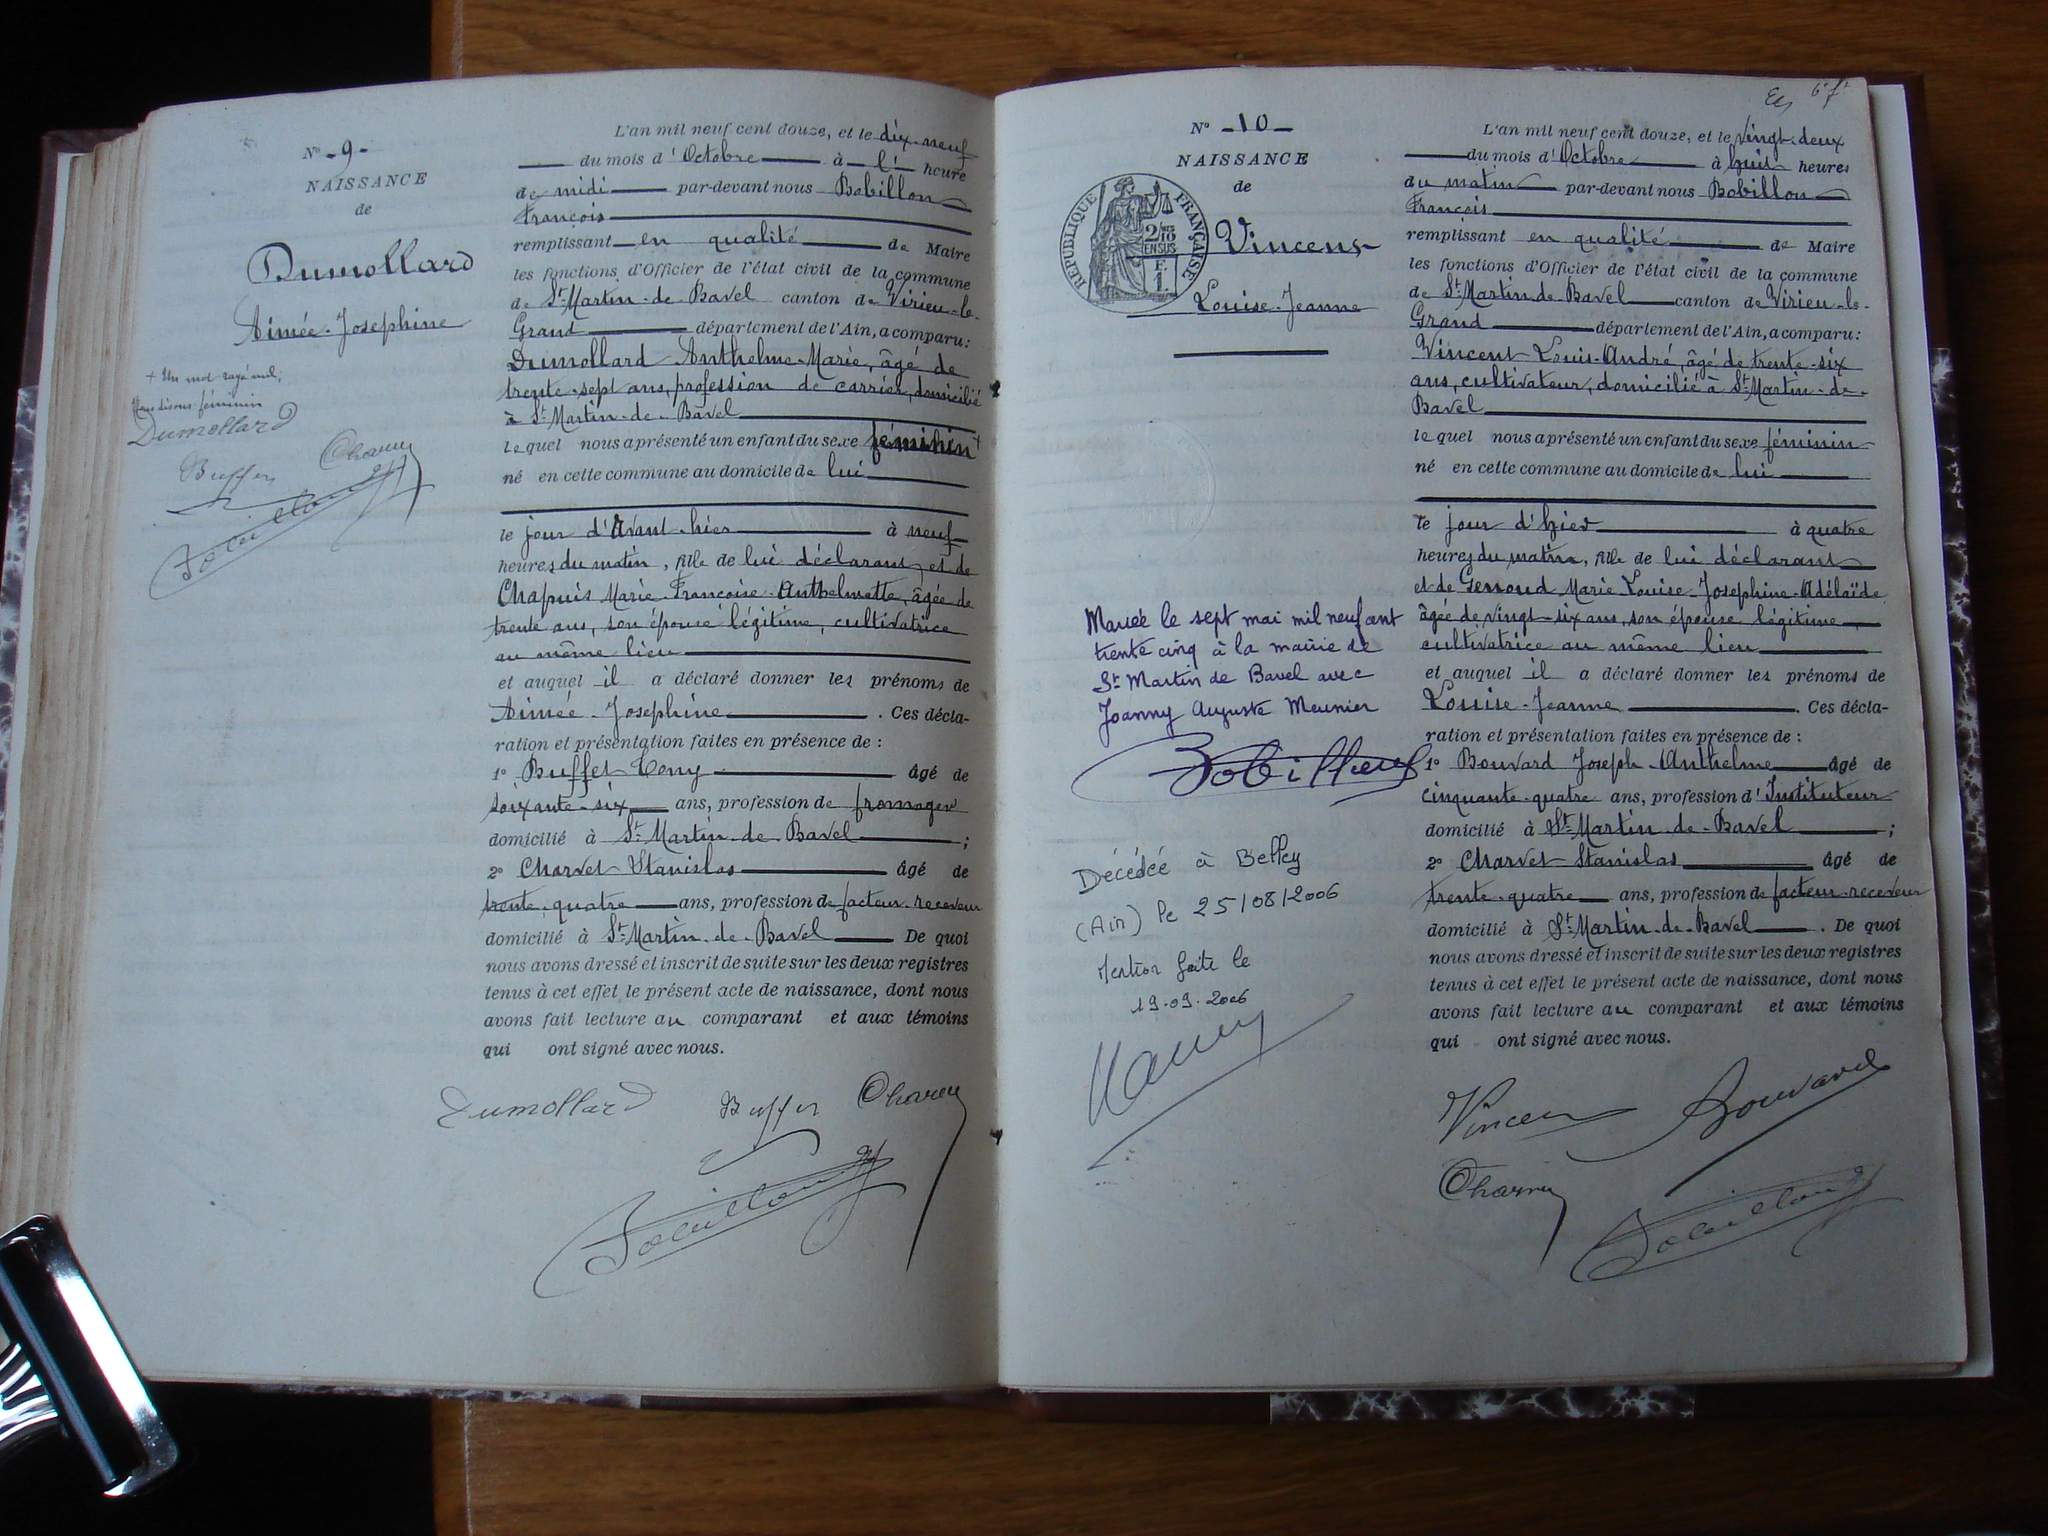 N° - 9 -
NAISSANCE
de
Dumollard
Aimée-Josephine
+ Un mot rayé nul,
Nous disons féminin
Dumollard
Buffet Charvet
Bobillon
L'an mil neuf cent douze, et le dix-neuf
du mois d'Octobre à l'1 heure
de midi par-devant nous Bobillon
François
remplissant en qualité de Maire
les fonctions d'Officier de l'état civil de la commune
de St Martin-de-Bavel canton de Virieu-le-
Grand département de l'Ain, a comparu:
Dumollard Anthelme-Marie, âgé de
trente-sept ans, profession de carrier, domicilié
à St Martin-de-Bavel
le quel nous a présenté un enfant du sexe féminin +
né en cette commune au domicile de lui
le jour d'Avant-hier à neuf
heures du matin, fille de lui déclarant, et de
Chapuis Marie-Françoise-Anthelmette, âgée de
trente ans, son épouse légitime, cultivatrice
au même lieu
et auquel il a déclaré donner les prénoms de
Aimée-Josephine . Ces décla-
ration et présentation faites en présence de :
1° Buffet Tony âgé de
soixante-six ans, profession de fromager
domicilié à St Martin-de-Bavel ;
2° Charvet Stanislas âgé de
trente-quatre ans, profession de facteur-receveur
domicilié à St Martin-de-Bavel De quoi
nous avons dressé et inscrit de suite sur les deux registres
tenus à cet effet le présent acte de naissance, dont nous
avons fait lecture au comparant et aux témoins
qui ont signé avec nous.
Dumollard Buffet Charvet
Bobillon
6e f
N° - 10 -
NAISSANCE
de
RÉPUBLIQUE FRANÇAISE
2/10
EN SUS
F.
1.
Vincens
Louise-Jeanne
Mariée le sept mai mil neuf cent
trente cinq à la mairie de
St Martin de Bavel avec
Joanny Auguste Meunier
Bobillon
Décédée à Belley
(Ain) le 25/08/2006
Mention faite le
19.09.2006
L'an mil neuf cent douze, et le vingt-deux
du mois d'Octobre à huit heures
du matin par-devant nous Bobillon
François
remplissant en qualité de Maire
les fonctions d'Officier de l'état civil de la commune
de St Martin-de-Bavel canton de Virieu-le-
Grand département de l'Ain, a comparu:
Vincent Louis-André, âgé de trente-six
ans, cultivateur, domicilié à St Martin-de-
Bavel
le quel nous a présenté un enfant du sexe féminin
né en cette commune au domicile de lui
le jour d'hier à quatre
heures du matin, fille de lui déclarant
et de Genoud Marie-Louise-Josephine-Adélaïde
âgée de vingt-six ans, son épouse légitime,
cultivatrice au même lieu
et auquel il a déclaré donner les prénoms de
Louise-Jeanne . Ces décla-
ration et présentation faites en présence de :
1° Bouvard Joseph-Anthelme âgé de
cinquante-quatre ans, profession d'Instituteur
domicilié à St Martin-de-Bavel ;
2° Charvet Stanislas âgé de
trente-quatre ans, profession de facteur-receveur
domicilié à St Martin-de-Bavel . De quoi
nous avons dressé et inscrit de suite sur les deux registres
tenus à cet effet le présent acte de naissance, dont nous
avons fait lecture au comparant et aux témoins
qui ont signé avec nous.
Vincent Bouvard
Charvet
Bobillon